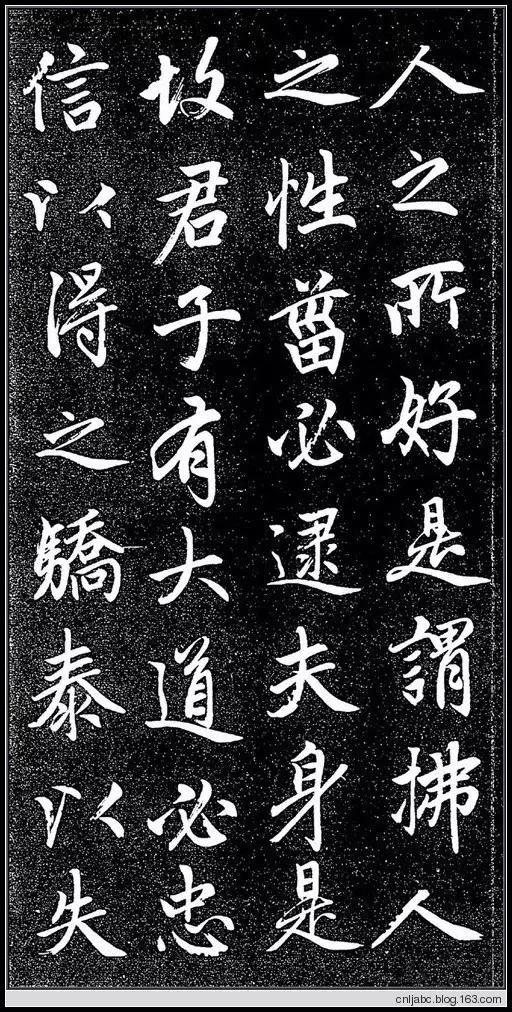 人之所好是謂拂人
之性菑必逮夫身是
故君子有大道必忠
信以得之驕泰以失
cnljabc.blog.163.com